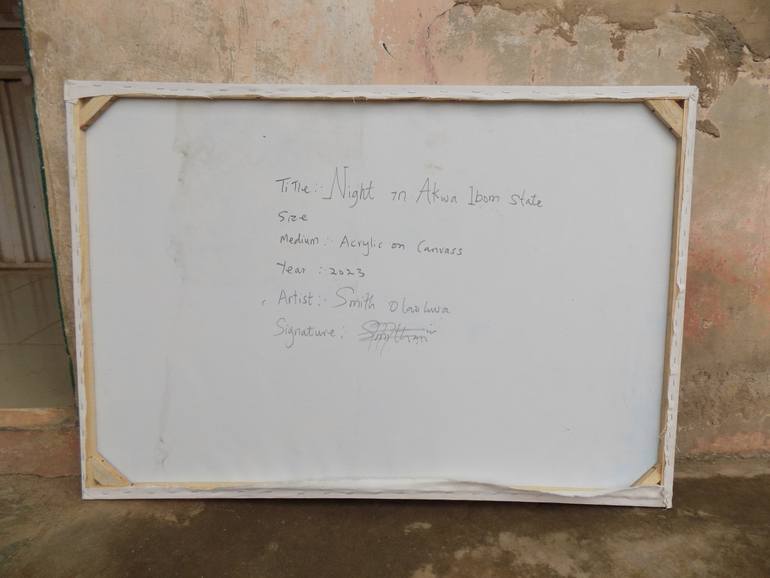 Title:- Night in Akwa Ibom State
Size
Medium:- Acrylic on Canvass
Year :- 2023
Artist:- Smith Olaoluwa
Signature: